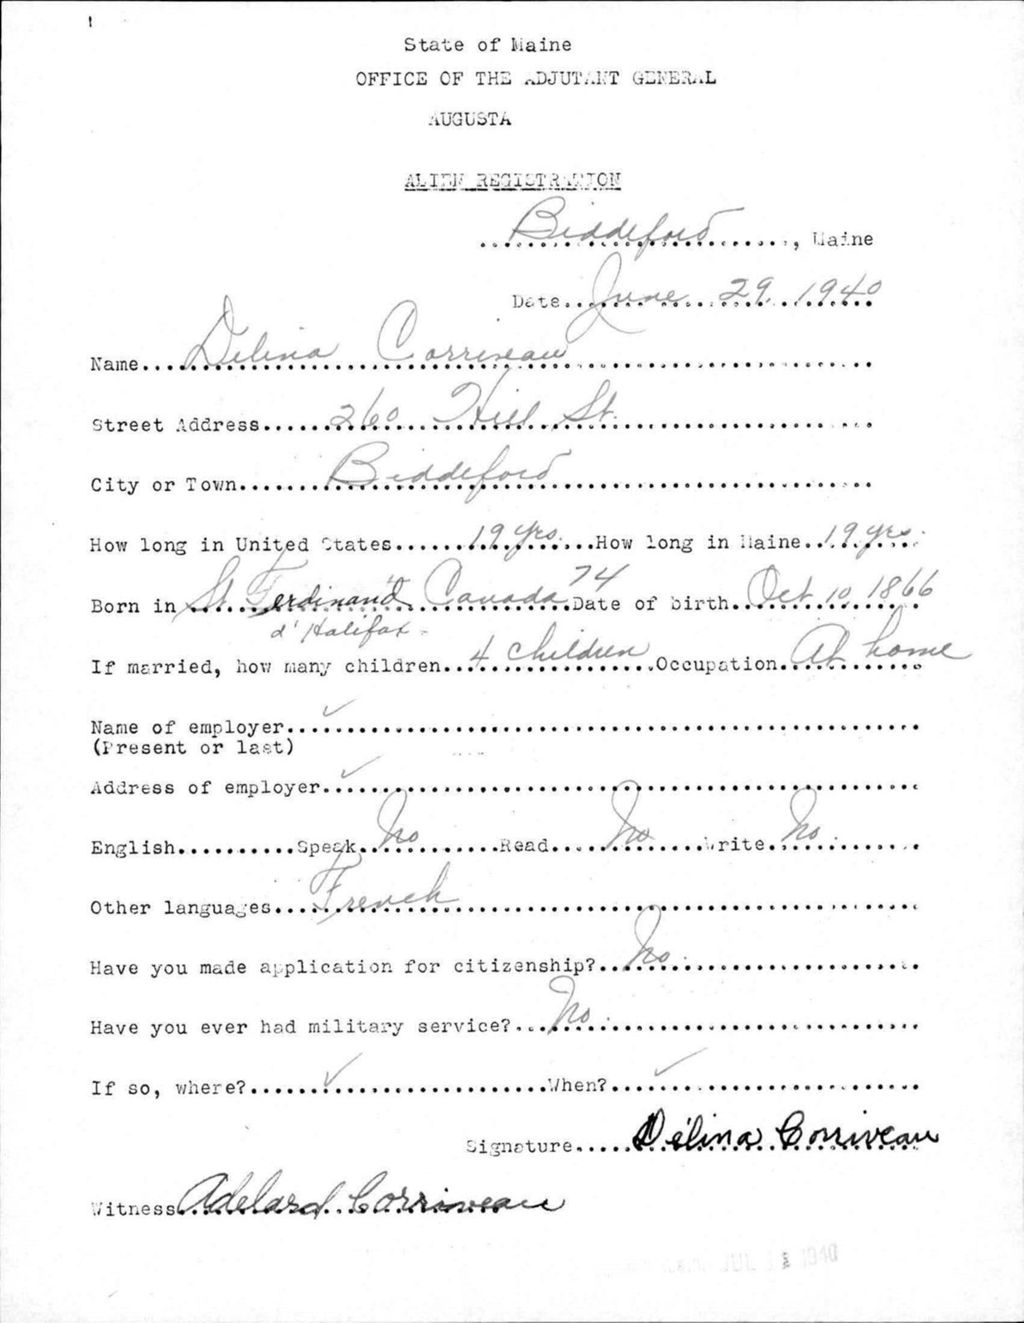 State of Maine
OFFICE OF THE ADJUTANT GENERAL
AUGUSTA
ALIEN REGISTRATION
Biddeford, Maine
Date June 29, 1940
Name Delina Corriveau
Street Address 260 Hill St.
City or Town Biddeford
How long in United States 19 yrs. How long in Maine 19 yrs.
74
Born in St. Ferdinand, Canada Date of birth Oct 10, 1866
d'Halifax
If married, how many children 4 children Occupation At home
Name of employer ✓
(Present or last)
Address of employer ✓
English Speak No Read No Write No
Other languages French
Have you made application for citizenship? No
Have you ever had military service? No
If so, where? ✓ When? ✓
Signature Délina Corriveau
Witness Adelard Corriveau
JUL 1940